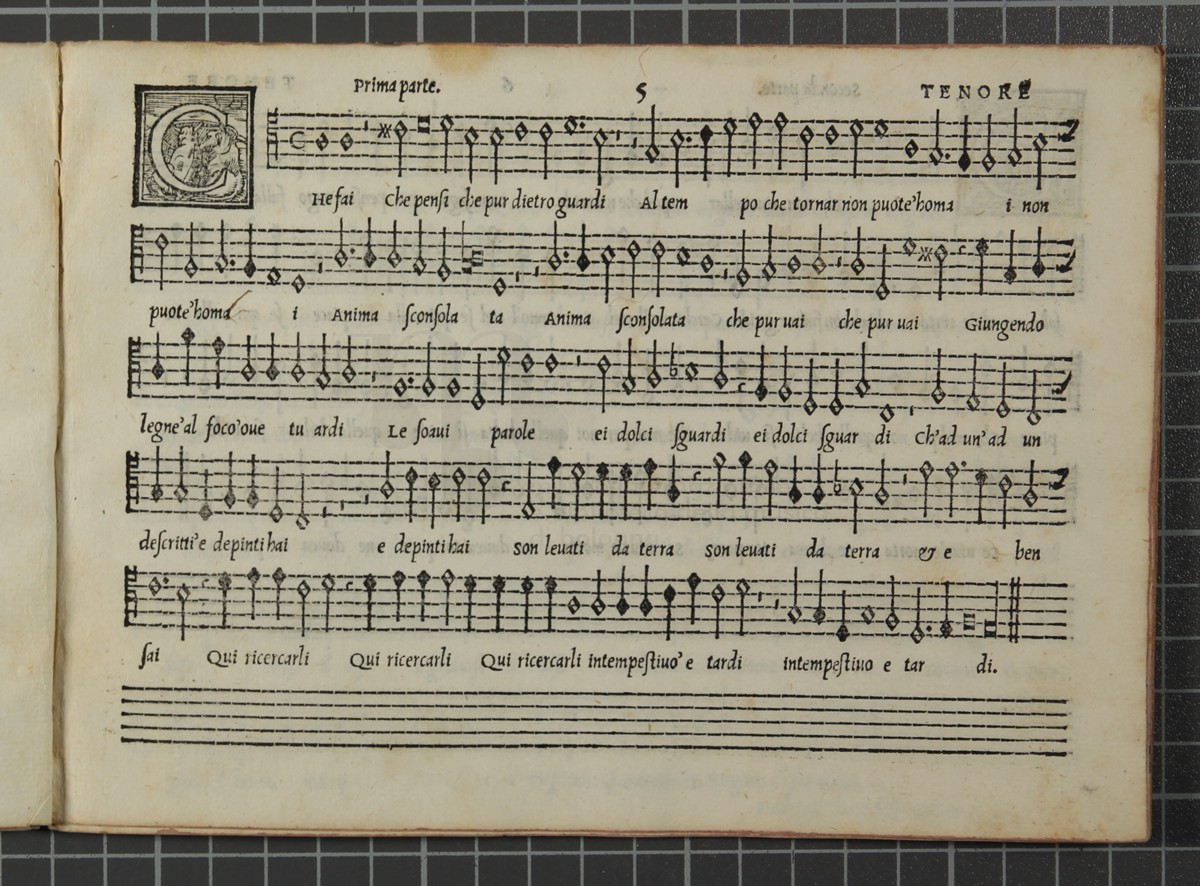 Prima parte. 5 TENORE
CHe fai Che pensi che pur dietro guardi Al tem po che tornar non puote'homa i non
puote'homa i Anima ſconſola ta Anima ſconſolata che pur uai che pur uai Giungendo
legne'al foco'oue tu ardi Le ſoaui parole ei dolci ſguardi ei dolci ſguar di Ch'ad un'ad un
deſcritti'e depinti hai e depinti hai son leuati da terra son leuati da terra & e ben
ſai Qui ricercarli Qui ricercarli Qui ricercarli intempeſtiuo'e tardi intempeſtiuo e tar di.